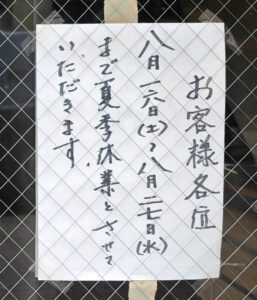 お客様各位
八月一六日(土)~八月二七日(水)
まで夏季休業とさせて
いただきます。